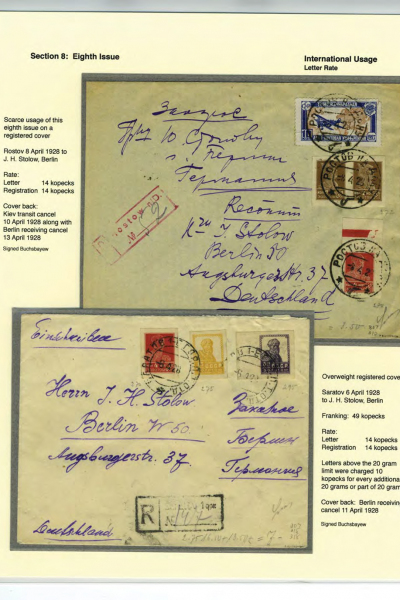 Section 8: Eighth Issue
International Usage
Letter Rate
Scarce usage of this
eighth issue on a
registered cover
Rostov 8 April 1928 to
J. H. Stolow, Berlin
Rate:
Letter 14 kopecks
Registration 14 kopecks
Cover back:
Kiev transit cancel
10 April 1928 along with
Berlin receiving cancel
13 April 1928
Signed Buchsbayew
Заказное
г. Берлин
Германия
J. Stolow
Berlin 50
Augsburger Str. 37
Deutschland
ROSTOV
№
Einschreiben
Herrn J. H. Stolow
Berlin W 50
Augsburgerstr. 37
Deutschland
Заказное
Берлин
Германия
R
№ 147
Overweight registered cove
Saratov 6 April 1928
to J. H. Stolow, Berlin
Franking: 49 kopecks
Rate:
Letter 14 kopecks
Registration 14 kopecks
Letters above the 20 gram
limit were charged 10
kopecks for every additiona
20 grams or part of 20 gram
Cover back: Berlin receiving
cancel 11 April 1928
Signed Buchsbayew